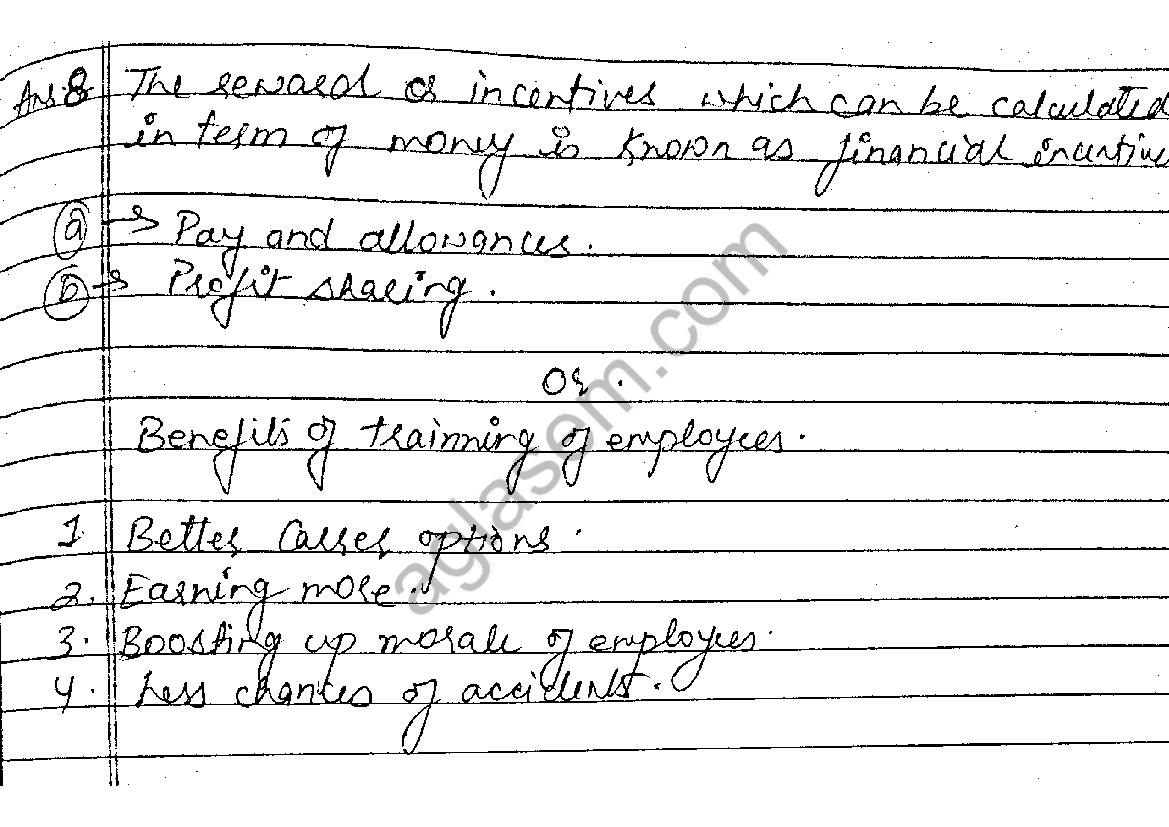 Ans.8 The reward or incentives which can be calculated
in term of money is known as financial incentive
(a) → Pay and allowances.
(b) → Profit sharing.
Or.
Benefits of trainning of employees.
1 Better Career options.
2. Earning more.
3. Boosting up morale of employees.
4. Less chances of accidents.
aglasem.com